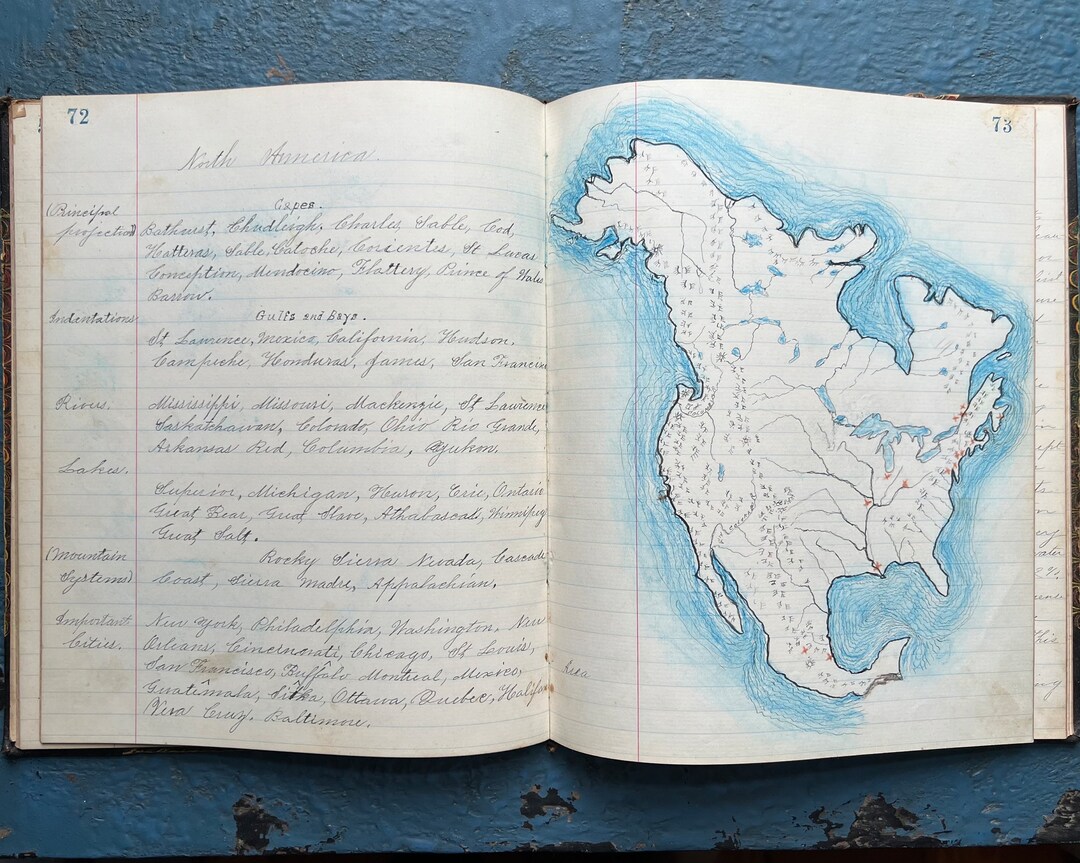 72
North America.
(Principal Capes.
projection) Bathurst, Chudleigh, Charles, Sable, Cod,
Hatteras, Sable, Catoche, Corientes, St Lucas
Conseption, Mendocino, Flattery, Prince of Wales
Barrow.
Indentations Gulfs and Bays.
St Lawrence, Mexico, California, Hudson.
Campeche, Honduras, James, San Francisco
Rivers. Mississippi, Missouri, Mackenzie, St Lawrence
Saskatchawan, Colorado, Ohio Rio Grande,
Arkansas Red, Columbia, Yukon.
Lakes.
Superior, Michigan, Huron, Erie, Ontario
Great Bear, Great Slave, Athabasca, Winnipeg
Great Salt.
(Mountain Rocky Sierra Nevada, Cascade
Systems) Coast, Sierra Madre, Appalachian.
Important New York, Philadelphia, Washington, New
Cities. Orleans, Cincinnati, Chicago, St Louis,
San Francisco, Buffalo Montreal, Mexico,
Guatimala, Sitka, Ottawa, Quebec, Halifax
Vera Cruz. Baltimore.
73